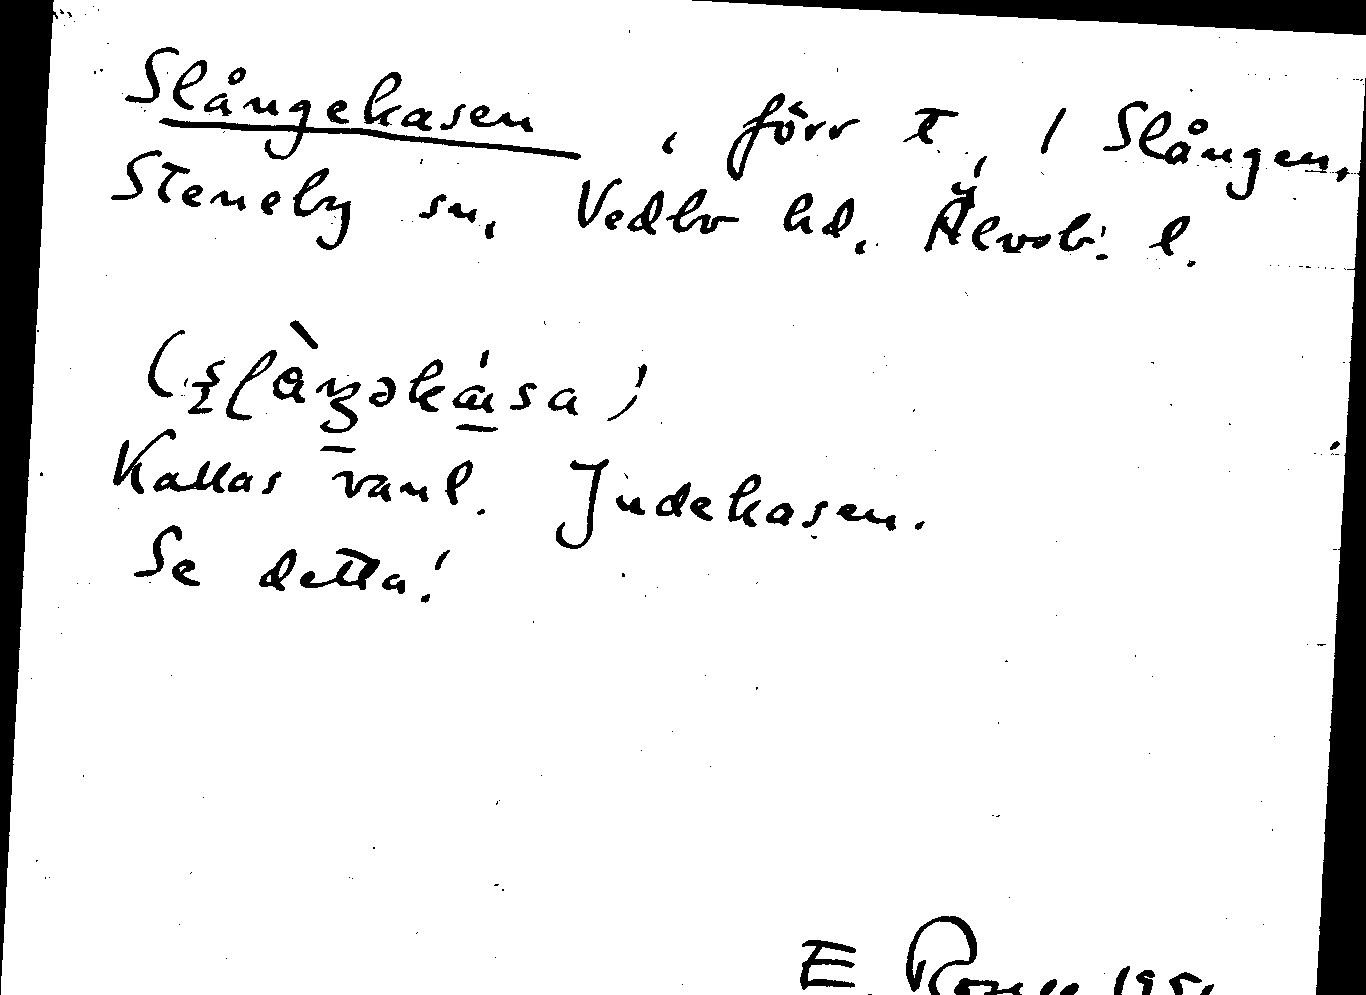 Slångekasen, förr t, 1 Slången,
Steneby sn, Vedbo hd, Älvsb. l.
Kallas vanl. Judekasen.
Se detta!
E.